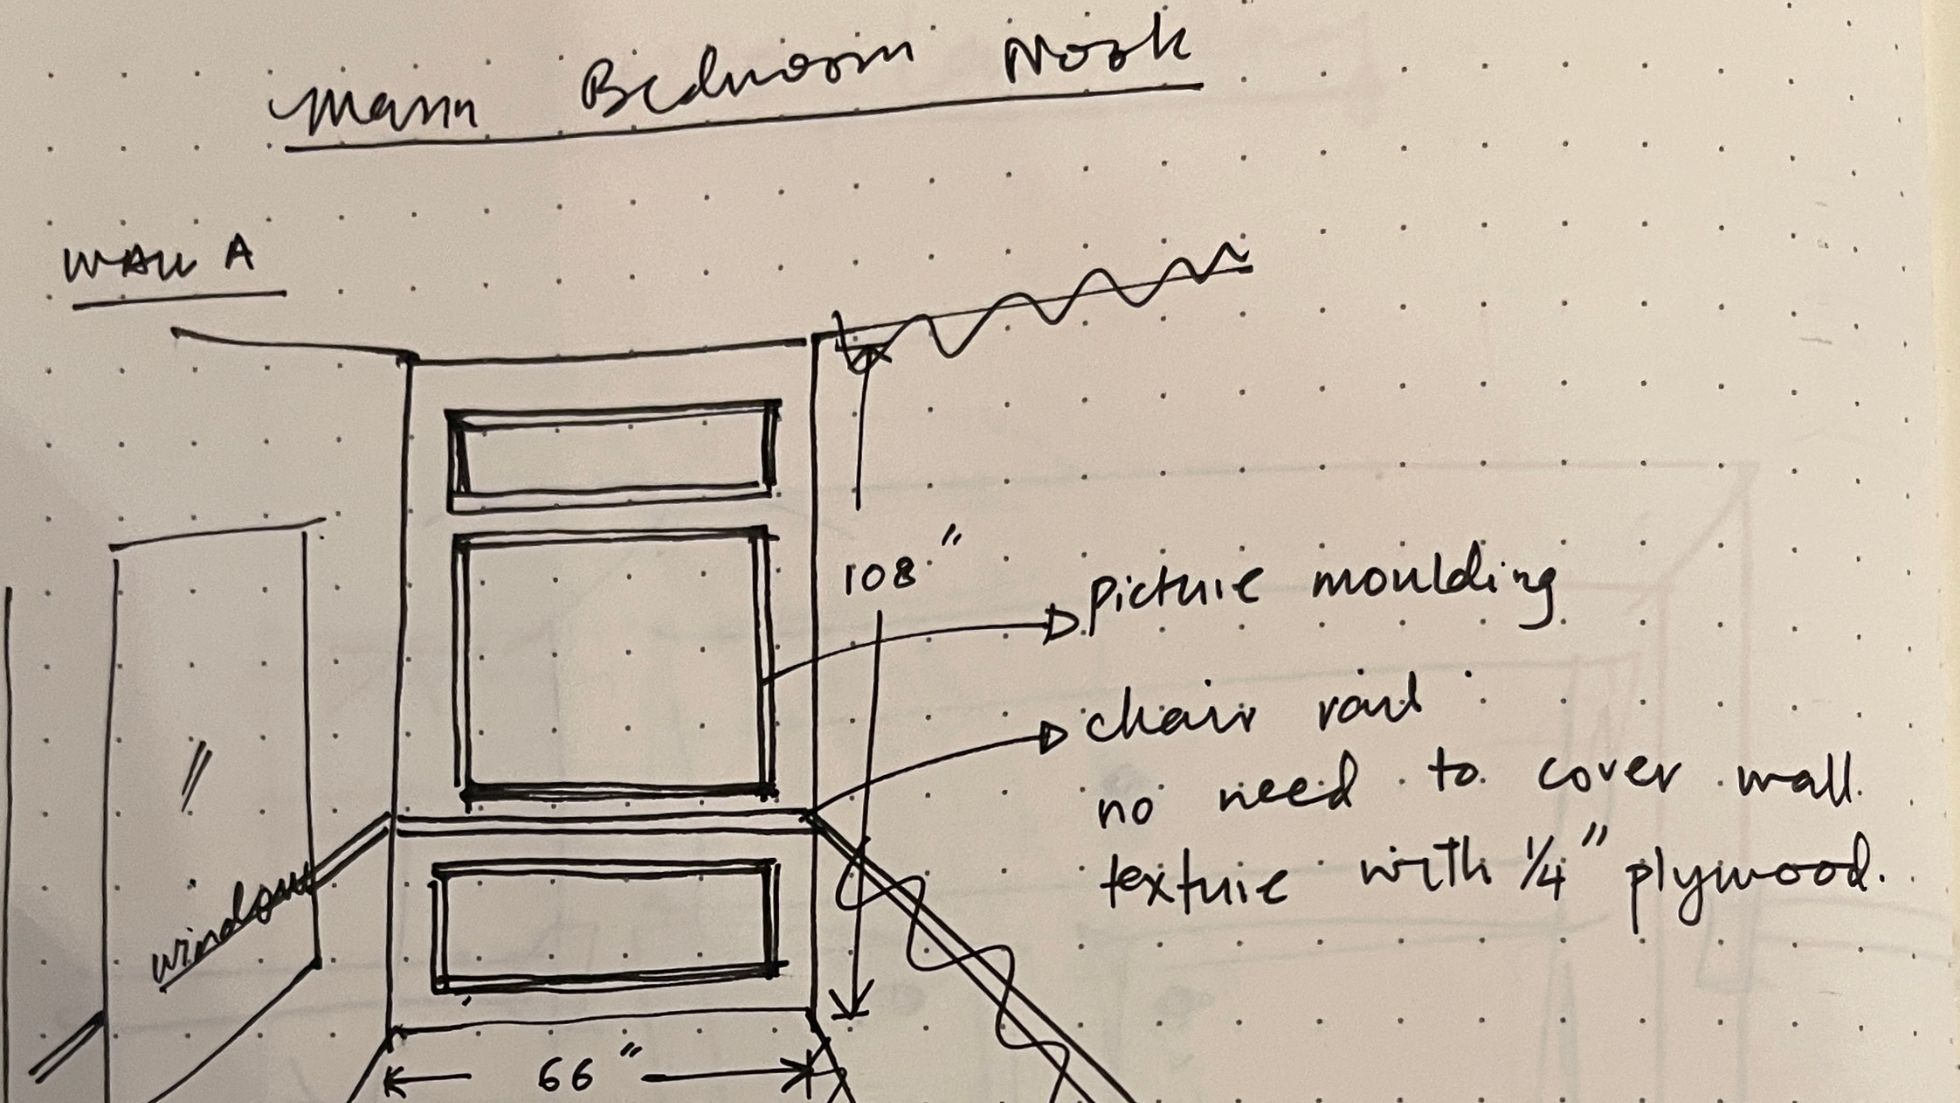 Mann Bedroom Nook
WALL A
108"
picture moulding
chair rail
no need to cover wall
texture with 1/4" plywood.
window
66"